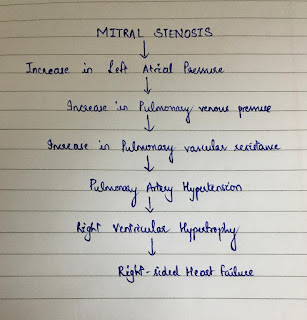 MITRAL STENOSIS
↓
Increase in Left Atrial Pressure
↓
Increase in Pulmonary venous pressure
↓
Increase in Pulmonary vascular resistance
↓
Pulmonary Artery Hypertension
↓
Right Ventricular Hypertrophy
↓
Right-sided Heart Failure